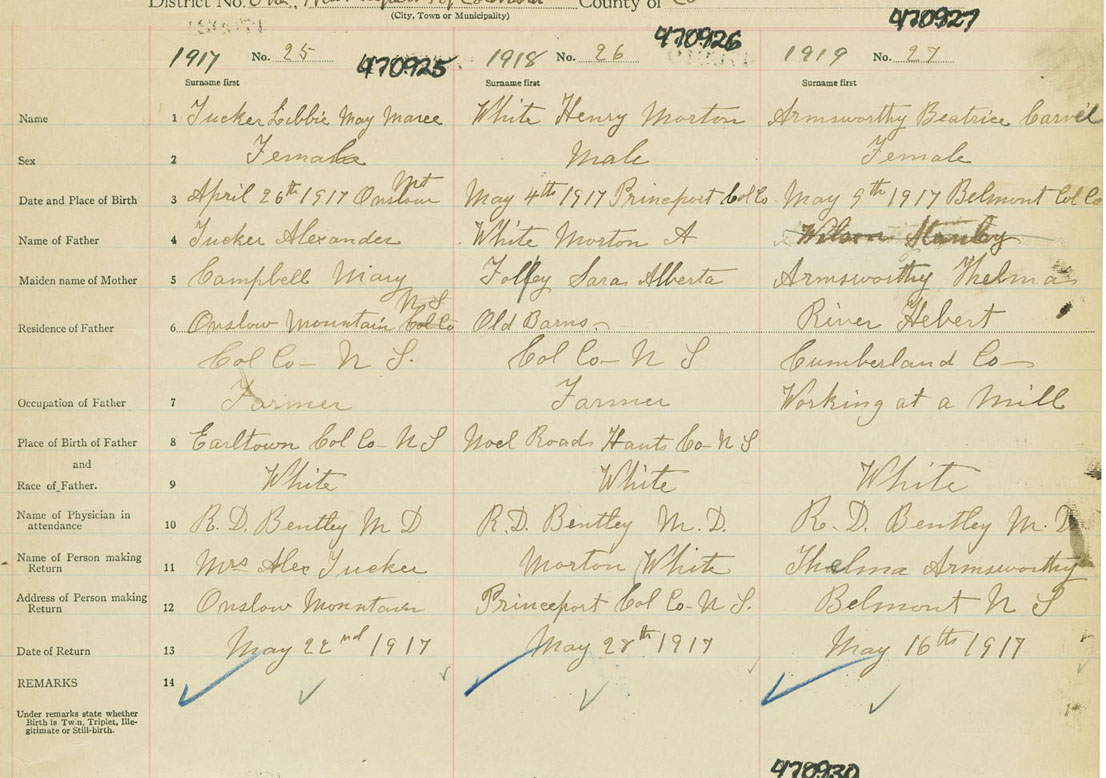 District No. One, Municipality of Colchester County of Co
(City, Town or Municipality)
470927
1917 No. 25 470925 1918 No. 26 470926 1919 No. 27
Surname first Surname first Surname first
Name 1 Tucker Libbie May Maree White Henry Morton Armsworthy Beatrice Carvel
Sex 2 Female Male Female
Date and Place of Birth 3 April 26th 1917 Onslow Mt May 4th 1917 Princeport Col Co May 9th 1917 Belmont Col Co
Name of Father 4 Tucker Alexander White Morton A Wilson Stanley
Maiden name of Mother 5 Campbell Mary Sara Alberta Armsworthy Thelma
Residence of Father 6 Onslow Mountain Col Co N S Old Barns River Hebert
Col Co - N S. Col Co - N S Cumberland Co
Occupation of Father 7 Farmer Farmer Working at a Mill
Place of Birth of Father 8 Earltown Col Co - N S Noel Roads Hants Co - N S
and
Race of Father. 9 White White White
Name of Physician in
attendance 10 R. D. Bentley M D R. D. Bentley M. D. R. D. Bentley M. D
Name of Person making
Return 11 Mrs Alex Tucker Morton White Thelma Armsworthy
Address of Person making
Return 12 Onslow Mountain Princeport Col Co - N S. Belmont N S
Date of Return 13 May 22nd 1917 May 28th 1917 May 16th 1917
REMARKS 14
Under remarks state whether
Birth is Twin, Triplet, Ille-
gitimate or Still-birth.
470930